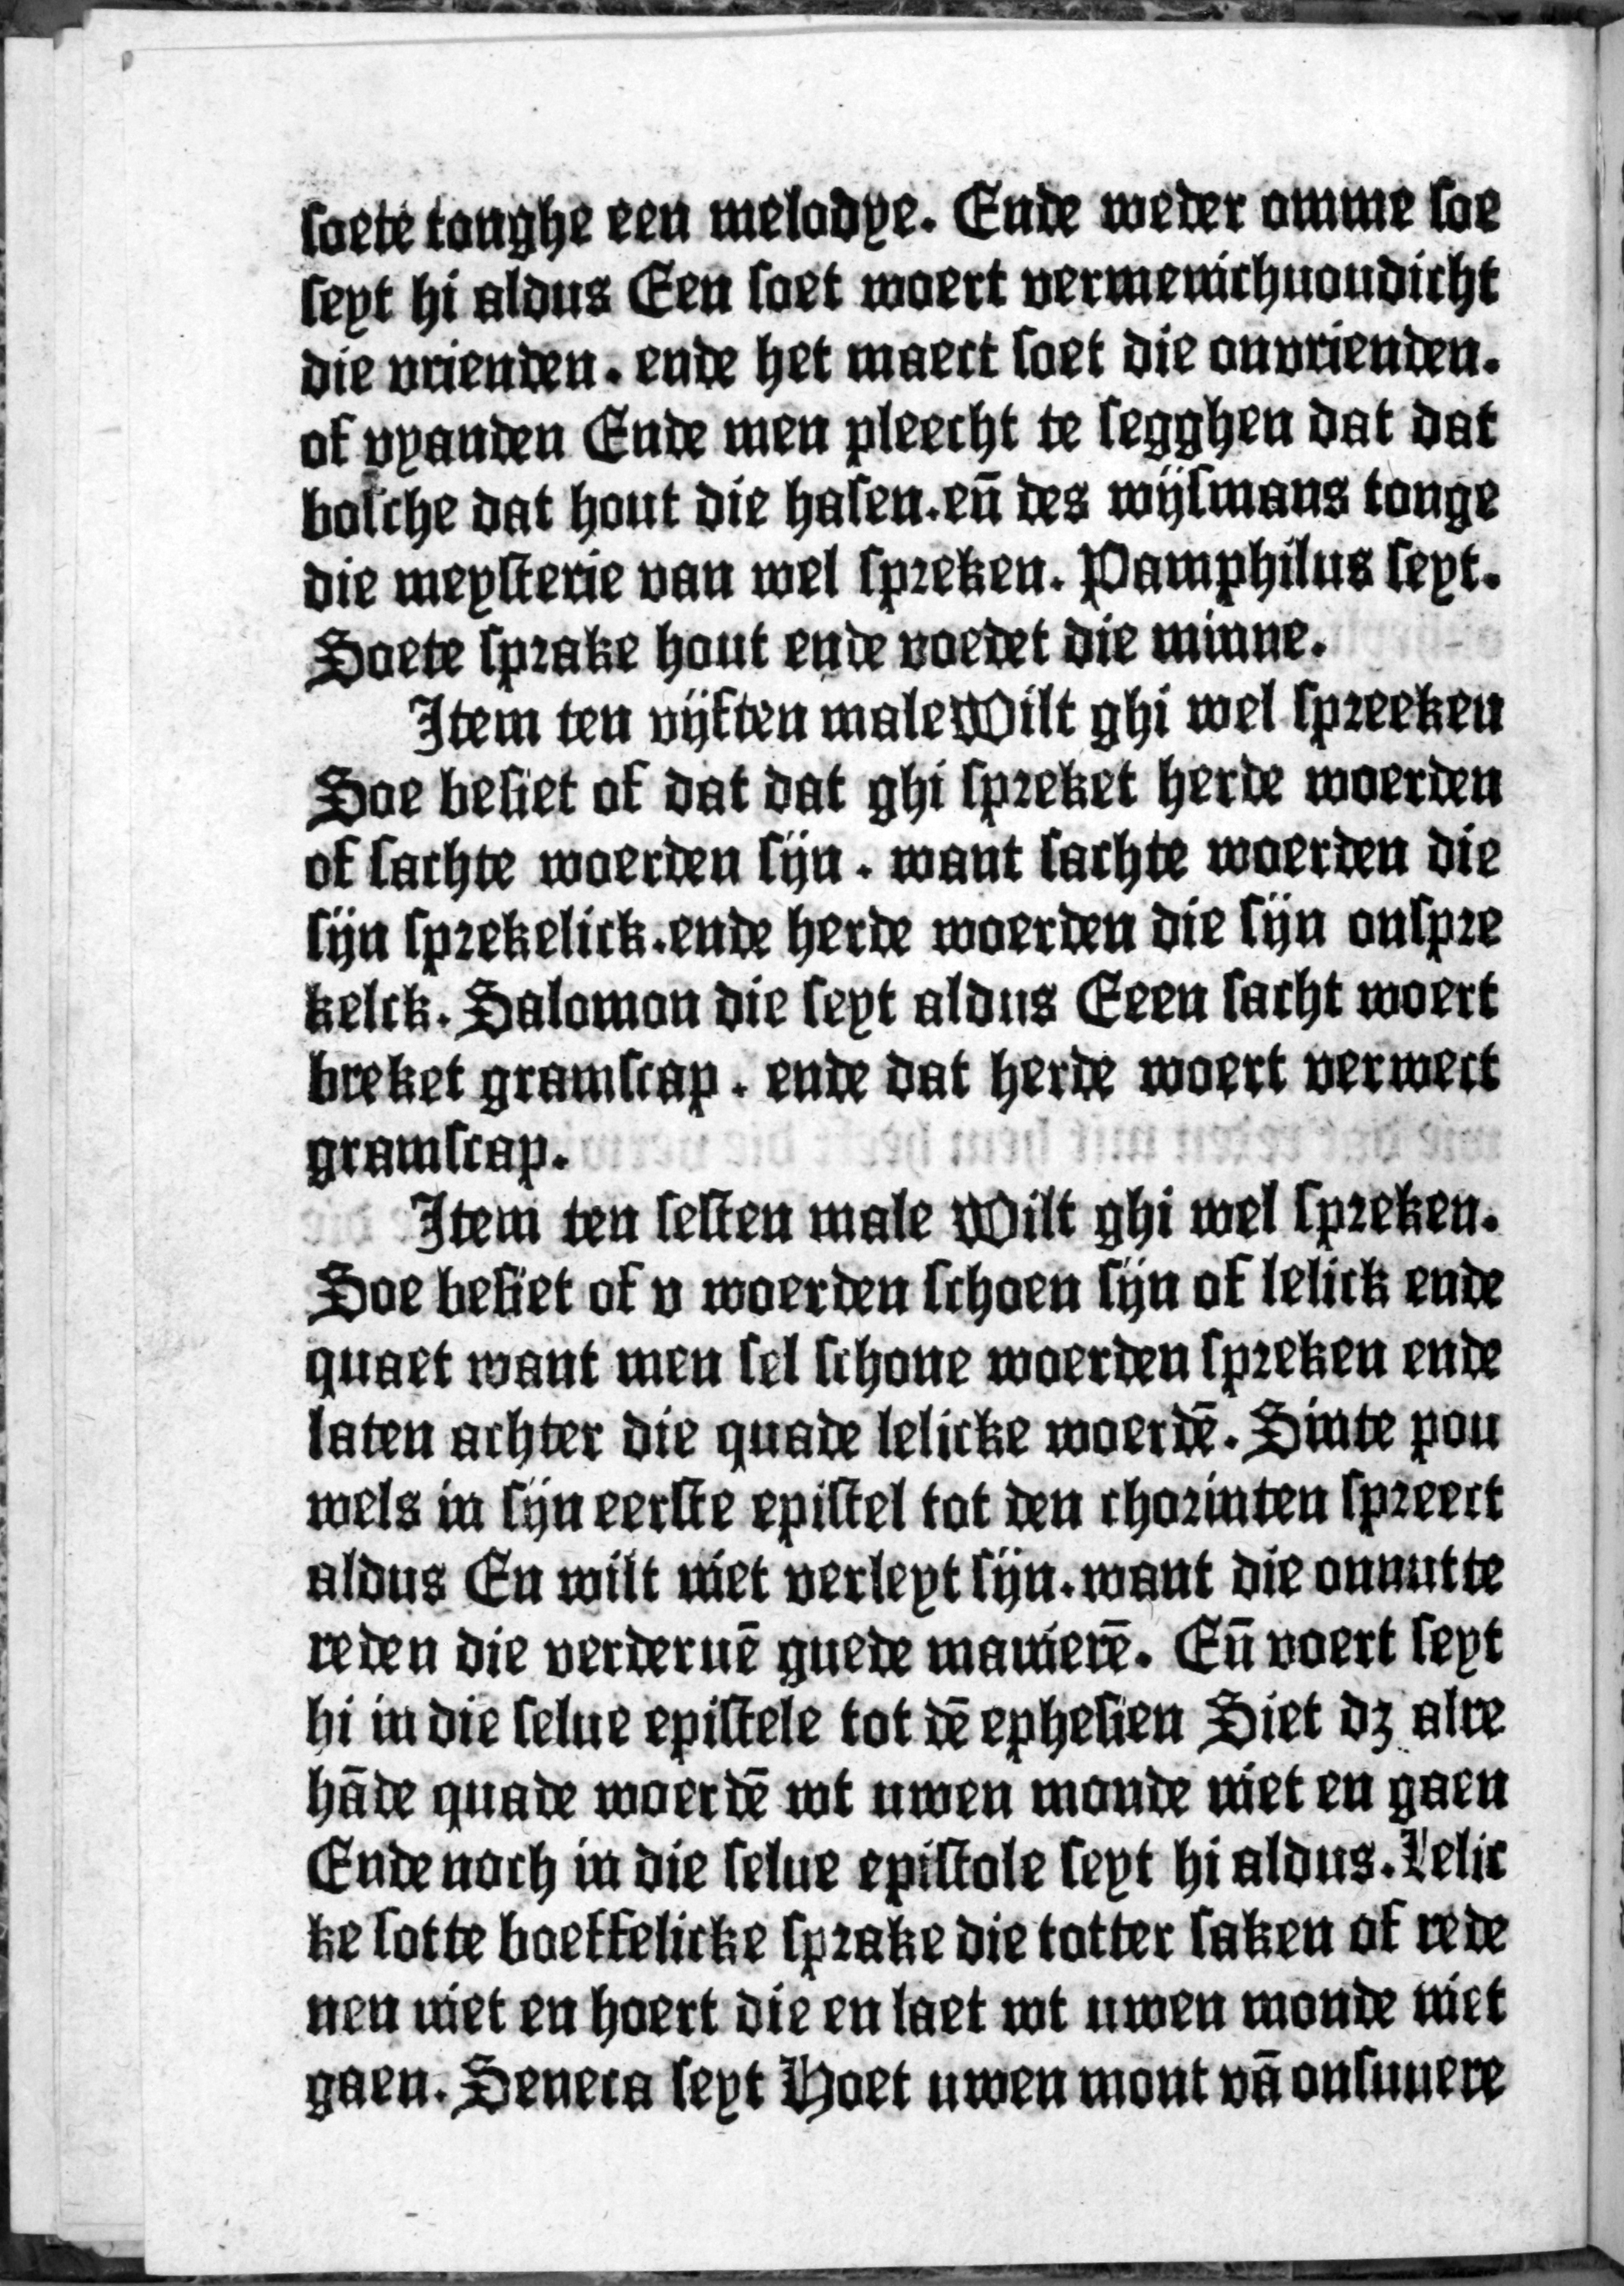 soete tonghe een melodye. Ende weder omme soe
seyt hi aldus Een soet woert vermenichuoudicht
die vrienden. ende het maect soet die onvrienden.
of vyanden Ende men pleecht te segghen dat dat
bosche dat hout die hasen.eñ des wijsmans tonge
die meysterie van wel spreken. Pamphilus seyt.
Soete sprake hout ende voedet die minne.
Item ten vijften male Wilt ghi wel spreeken
Soe besiet of dat dat ghi spreket herde woerden
of sachte woerden sijn. want sachte woerden die
sijn sprekelick.ende herde woerden die sijn onspre
kelck. Salomon die seyt aldus Eeen sacht woert
breket gramscap. ende dat herde woert verwect
gramscap.
Item ten sesten male Wilt ghi wel spreken.
Soe besiet of v woerden schoen sijn of lelick ende
quaet want men sel schone woerden spreken ende
laten achter die quade lelicke woerdē. Sinte pou
wels in sijn eerste epistel tot den chorinten spreect
aldus En wilt niet verleyt sijn.want die onnutte
reden die verderuē guede manierē. Eñ voert seyt
hi in die selue epistele tot dē ephesien Siet dꝫ alre
hāde quade woerdē wt uwen monde niet en gaen
Ende noch in die selue epistole seyt hi aldus. Lelic
ke sotte boeffelicke sprake die totter saken of rede
nen niet en hoert die en laet wt uwen monde niet
gaen. Seneca seyt Hoet uwen mont vā onsuuere